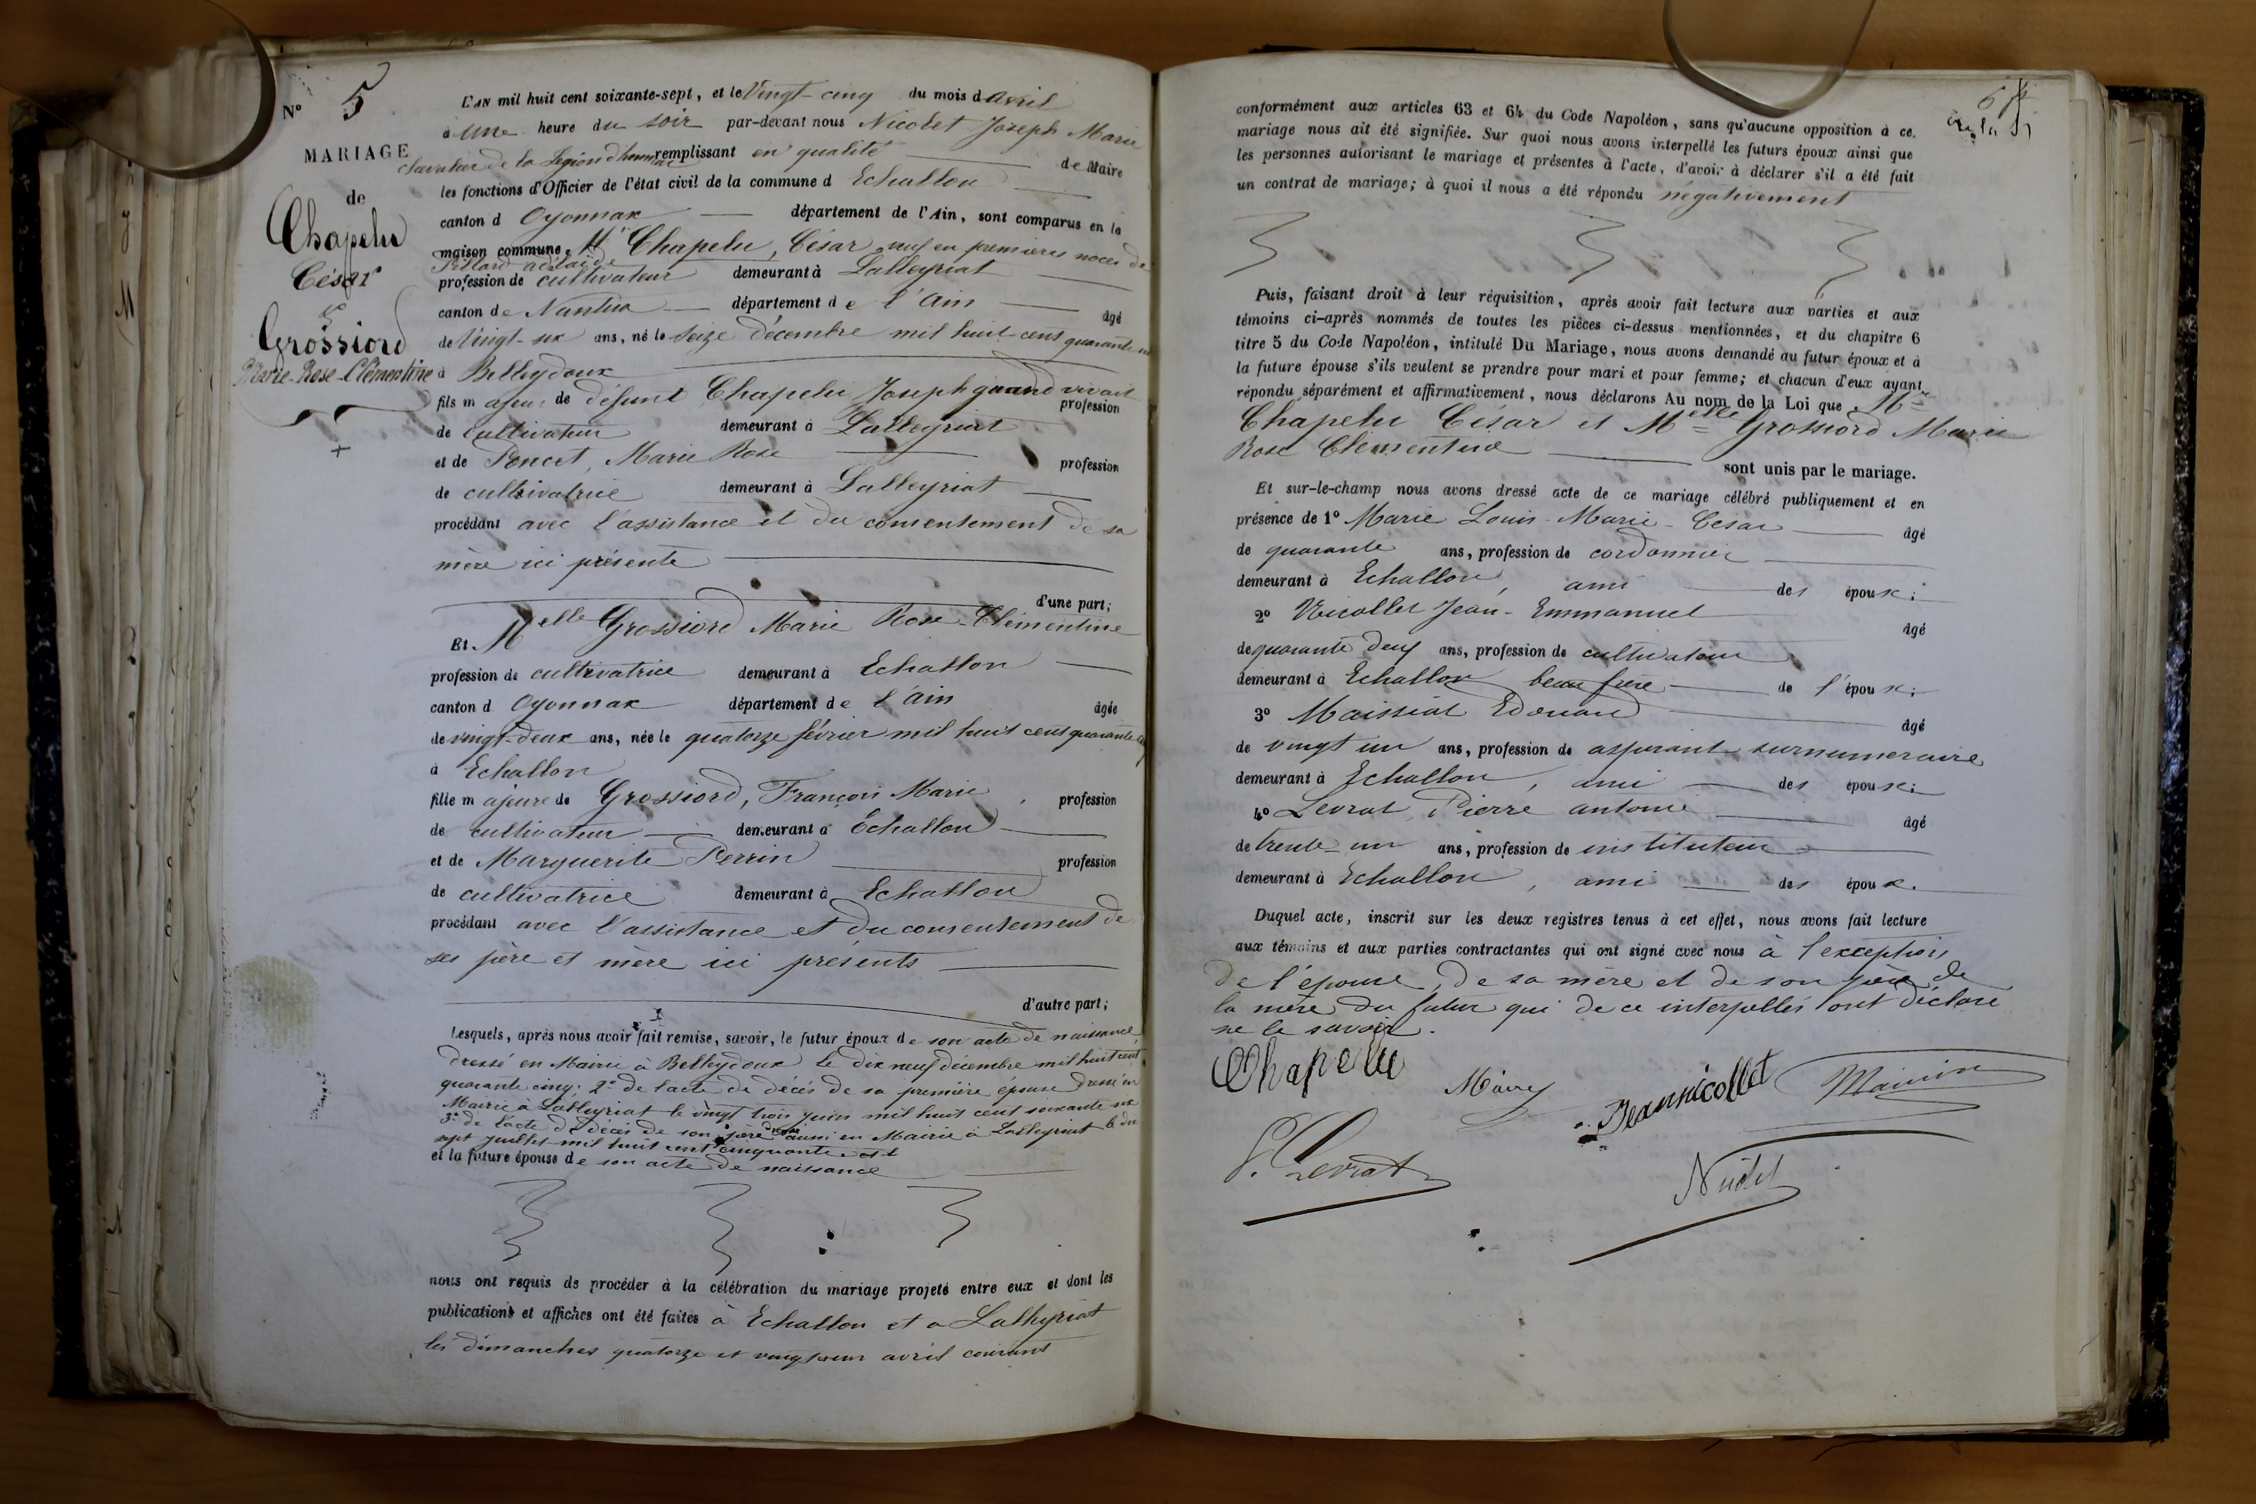 N° 5
MARIAGE
de
Chapelu
César
&
Grossiord
Marie-Rose-Clémentine
L'AN mil huit cent soixante-sept, et le Vingt-cinq du mois d'avril
à une heure du soir par-devant nous Nicolet Joseph Marie
chevalier de la Légion d'honneur remplissant en qualité de Maire
les fonctions d'Officier de l'état civil de la commune d Echallon
canton d Oyonnax département de l'Ain, sont comparus en la
maison commune, Mr Chapelu, César veuf en premières noces de
adélaïde
profession de cultivateur demeurant à Lalleyriat
canton de Nantua département de l'Ain âgé
de Vingt-six ans, né le seize décembre mil huit-cent quarante
à Belleydoux
fils majeur de défunt Chapelu Joseph quand vivait profession
de cultivateur demeurant à Lalleyriat
et de Poncet, Marie Rose profession
de cultivatrice demeurant à Lalleyriat
procédant avec l'assistance et du consentement de sa
mère ici présente
d'une part;
Et Melle Grossiord Marie Rose-Clémentine
profession de cultivatrice demeurant à Echallon
canton d Oyonnax département de l'Ain âgée
de vingt-deux ans, née le quatorze février mil huit cent quarante
à Echallon
fille majeure de Grossiord, François Marie, profession
de cultivateur demeurant à Echallon
et de Marguerite Perrin profession
de cultivatrice demeurant à Echallon
procédant avec l'assistance et du consentement de
ses père et mère ici présents
d'autre part;
Lesquels, après nous avoir fait remise, savoir, le futur époux de son acte de naissance
dressé en Mairie à Belleydoux le dix neuf décembre mil huit cent
quarante cinq; 2° de l'acte de décès de sa première épouse dressé en
Mairie à Lalleyriat le vingt trois juin mil huit cent soixante six
3° de l'acte de décès de son père dressé aussi en Mairie à Lalleyriat le dix
sept juillet mil huit cent cinquante sept
et la future épouse de son acte de naissance
nous ont requis de procéder à la célébration du mariage projeté entre eux et dont les
publications et affiches ont été faites à Echallon et a Lalleyriat
les dimanches quatorze et vingt un avril courant
conformément aux articles 63 et 64 du Code Napoléon, sans qu'aucune opposition à ce
mariage nous ait été signifiée. Sur quoi nous avons interpellé les futurs époux ainsi que
les personnes autorisant le mariage et présentes à l'acte, d'avoir à déclarer s'il a été fait
un contrat de mariage; à quoi il nous a été répondu négativement
Puis, faisant droit à leur réquisition, après avoir fait lecture aux parties et aux
témoins ci-après nommés de toutes les pièces ci-dessus mentionnées, et du chapitre 6
titre 5 du Code Napoléon, intitulé Du Mariage, nous avons demandé au futur époux et à
la future épouse s'ils veulent se prendre pour mari et pour femme; et chacun d'eux ayant
répondu séparément et affirmativement, nous déclarons Au nom de la Loi que Mr
Chapelu César et Melle Grossiord Marie
Rose Clémentine sont unis par le mariage.
Et sur-le-champ nous avons dressé acte de ce mariage célébré publiquement et en
présence de 1° Marie Louis-Marie-César âgé
de quarante ans, profession de cordonnier
demeurant à Echallon, ami des époux;
2° Nicollet Jean-Emmanuel âgé
de quarante deux ans, profession de cultivateur
demeurant à Echallon beau frère de l'époux;
3° Maissiat Edouard âgé
de vingt un ans, profession de aspirant surnuméraire
demeurant à Echallon, ami des époux;
4° Levrat, Pierre antoine âgé
de trente-un ans, profession de instituteur
demeurant à Echallon, ami des époux.
Duquel acte, inscrit sur les deux registres tenus à cet effet, nous avons fait lecture
aux témoins et aux parties contractantes qui ont signé avec nous à l'exception
de l'épouse, de sa mère et de son père de
la mère du futur qui de ce interpellés ont déclaré
ne le savoir.
Chapelu
Jeannicollet
P. Levrat